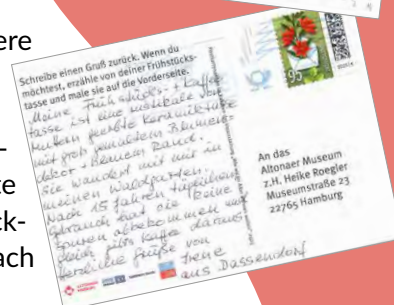 ere
-
te
ck-
ach
Schreibe einen Gruß zurück. Wenn du
möchtest, erzähle von deiner Frühstücks-
tasse und male sie auf die Vorderseite.
Meine Frühstücks- + Kaffee
tasse ist eine von
Keramiktasse
mit grob gemaltem Blumen-
dekor + blauem Rand.
Sie wandert mit mir in
meinen Waldgarten.
Nach 15 Jahren täglichem
Gebrauch hat sie keine
Spuren abbekommen und
gleich gibts Kaffee daraus
Herzliche Grüße von
Irene
aus Dassendorf
95
An das
Altonaer Museum
z.H. Heike Roegler
Museumstraße 23
22765 Hamburg